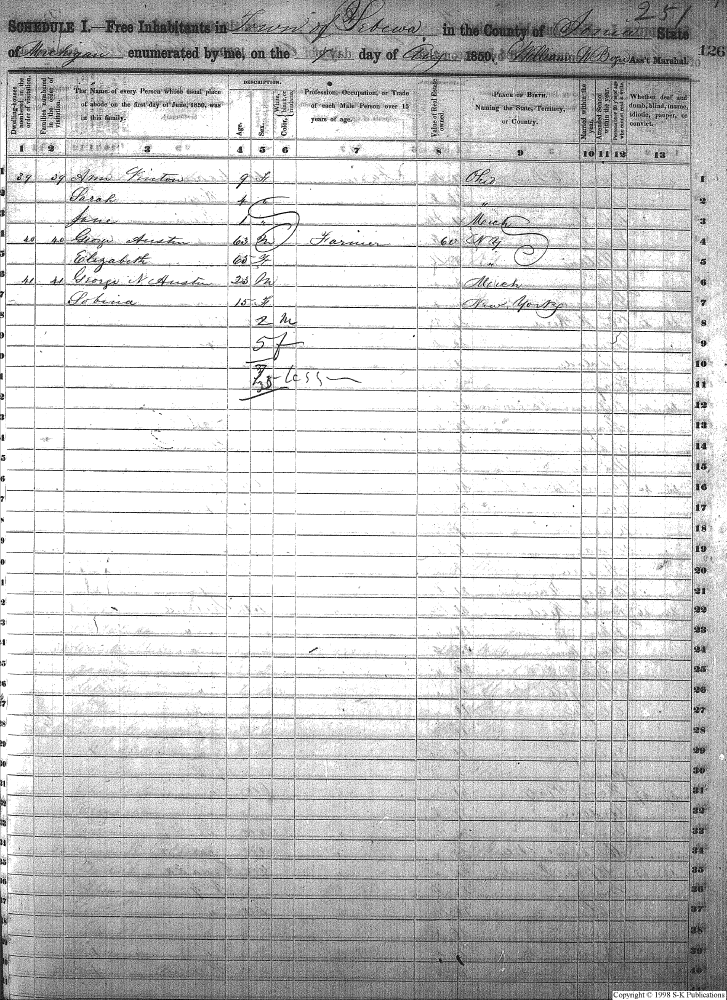 251
SCHEDULE I.—Free Inhabitants in Town of Sebewa in the County of Ionia State
of Michigan enumerated by me, on the day of 1850. William Ass't Marshal. 126
Dwelling-houses numbered in the order of visitation.
Families numbered in the order of visitation.
The Name of every Person whose usual place of abode on the first day of June, 1850, was in this family.
DESCRIPTION.
Age.
Sex.
Color, White, black, or mulatto.
Profession, Occupation, or Trade of each Male Person over 15 years of age.
Value of Real Estate owned.
PLACE OF BIRTH. Naming the State, Territory, or Country.
Married within the year.
Attended School within the year.
Whether deaf and dumb, blind, insane, idiotic, pauper, or convict.
1 2 3 4 5 6 7 8 9 10 11 12 13
39 39 Ann 9 f Ohio 1
Sarah 4 " " 2
Jane 1 " Mich 3
40 40 George Austin 63 m Farmer 60 N Y 4
Elizabeth 65 F " 5
41 41 George N Austin 23 m Mich 6
Sobina 15 F New York 7
2 m 8
5 f 9
10
35 less 11
12
13
14
15
16
17
18
19
20
21
22
23
24
25
26
27
28
29
30
31
32
33
34
35
36
37
38
39
40
Copyright © 1998 S-K Publications